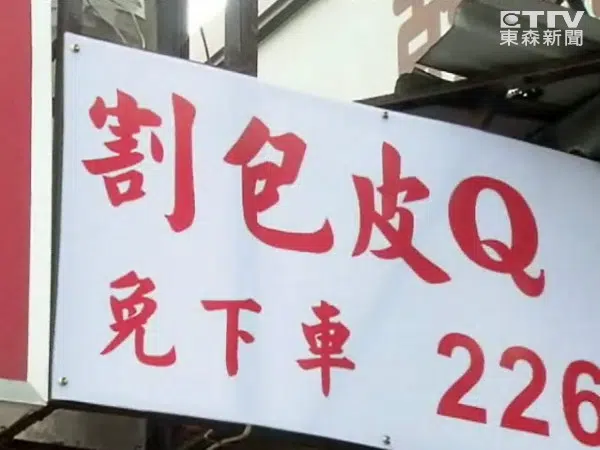 CTTV
東森新聞
割包皮Q
免下車 226